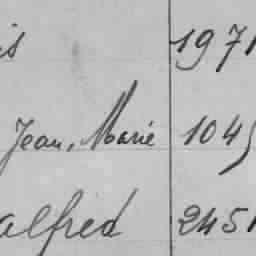 is 1971
Jean, Marie 1045
alfred 2451